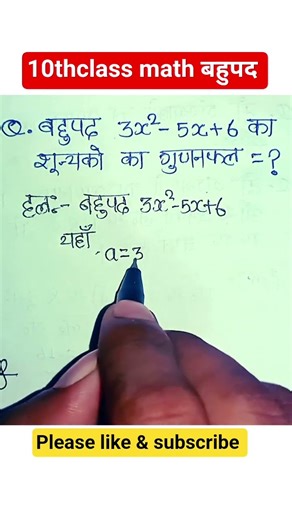 10thclass math बहुपद
Q. बहुपद 3x²-5x+6 का
शून्यको का गुणनफल =?
हलः- बहुपद 3x²-5x+6
यहाँ
a=3
Please like & subscribe